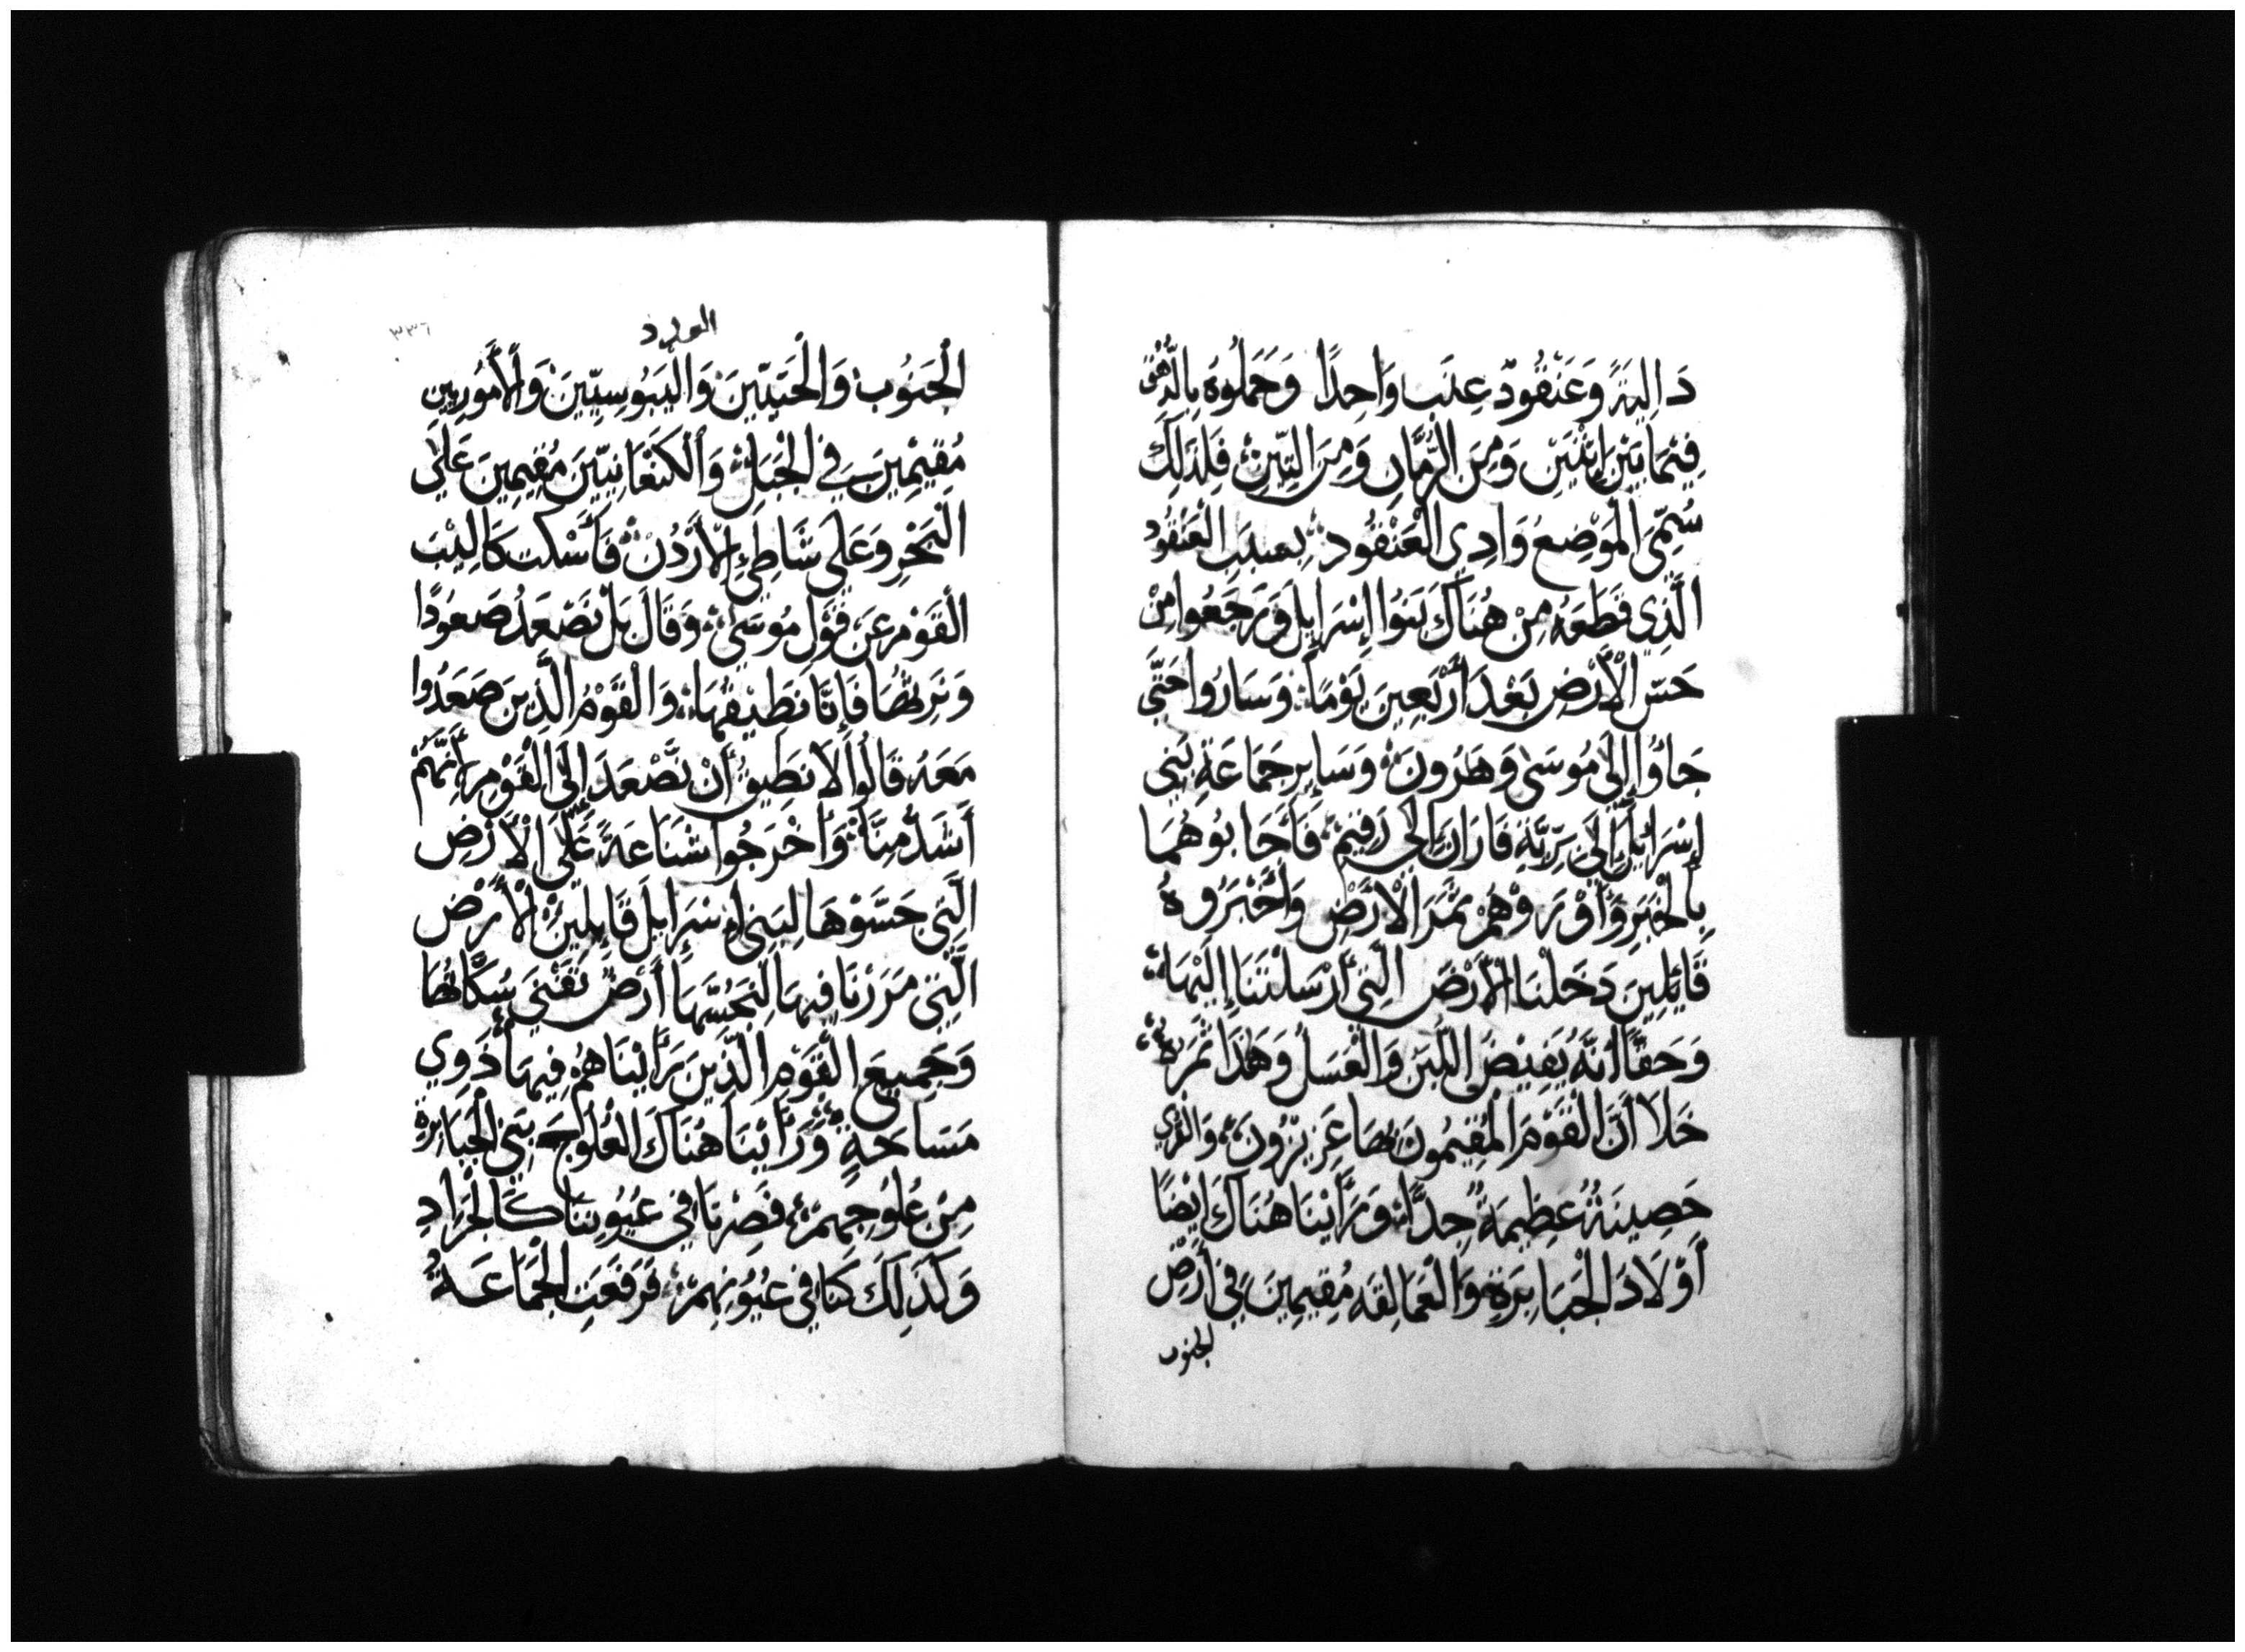 دَالِيَةً وَعَنْقُودَ عِنَبٍ وَاحِدًا وَحَمَلُوهُ بِالدُّهُقِ
فِيْمَا بَيْنَ اثْنَيْنِ وَمِنَ الرُّمَّانِ وَمِنَ التِّينِ فَلِذَلِكَ
سُمِّيَ الْمَوْضِعُ وَادِي الْعَنْقُودِ بِسَبَبِ الْعَنْقُودِ
الَّذِي قَطَعَهُ مِنْ هُنَاكَ بَنُوا إِسْرَايِلَ وَرَجَعُوا مِنْ
حَسِّ الْأَرْضِ بَعْدَ أَرْبَعِينَ يَوْمًا وَسَارُوا حَتَّى
جَاؤُا إِلَى مُوسَى وَهَرُونَ وَسَايِرِ جَمَاعَةِ بَنِي
إِسْرَائِلَ إِلَى بَرِّيَّةِ فَارَانَ إِلَى رَقِيمَ فَأَجَابُوهُمَا
بِالْخَبَرِ وَأَوْرَوْهُمْ ثَمَرَ الْأَرْضِ وَأَخْبَرُوهُ
قَائِلِينَ دَخَلْنَا الْأَرْضَ الَّتِي أَرْسَلْتَنَا إِلَيْهَا
وَحَقًّا أَنَّهُ يَفِيضُ اللَّبَنَ وَالْعَسَلَ وَهَذَا ثَمَرُهُ
خَلَا أَنَّ الْقَوْمَ الْمُقِيمُونَ بِهَا عَزِيزُونَ وَالْقُرَى
حَصِينَةٌ عَظِيمَةٌ جِدًّا وَرَأَيْنَا هُنَاكَ ايْضًا
أَوْلَادَ الْجَبَابِرَةِ وَالْعَمَالِقَه مُقِيمِينَ فِي أَرْضِ
الجنوب
العدد
٣٣٦
الْجَنُوبِ وَالْحَيتِيِّينَ وَالْيَبُوسِيِّينَ وَالْأَمُورِيينِ
مُقِيمِينَ فِي الْجَبَلِ وَالْكَنْعَانِيِّينَ مُقِيمِينَ عَلَى
الْبَحْرِ وَعَلَى شَاطِئِ الْأُرْدُنِّ فَأَسْكَتَ كَالِيْبَ
الْقَوْمَ عَنْ قَوْلِ مُوسَى وَقَالَ بَلْ نَصْعَدُ صَعُودًا
وَنَرِثُهَا فَإِنَّا نَطِيقُهَا وَالْقَوْمُ الَّذِينَ صَعَدُوا
مَعَهُ قَالُوا لَا نَطِيقُ أَنْ نَصْعَدَ إِلَى الْقَوْمِ لِأَنَّهُمْ
أَشَدُّ مِنَّا وَأَخْرَجُوا شَنَاعَةً عَلَى الْأَرْضِ
الَّتِي جَسَّوْهَا لِبَنِي إِسْرَايِلَ قَايِلِينَ الْأَرْضُ
الَّتِي مَرَرْنَا فِيهَا لِنَجُسَّهَا أَرْضٌ تَفْنِي سُكَّانُهَا
وَجَمِيعَ الْقَوْمِ الَّذِينَ رَأَيْنَاهُمْ فِيهَا ذَوِي
مَسَاحَةٍ وَرَأَيْنَا هُنَاكَ الْعُلُوجَ بَنِي الْجَبَابِرَةِ
مِنْ عُلُوجِهِمْ فَصِرْنَا فِي عُيُونِنَا كَالْجَرَادِ
وَكَذَلِكَ كُنَّا فِي عُيُونِهِمْ فَرَفَعَتِ الْجَمَاعَةُ